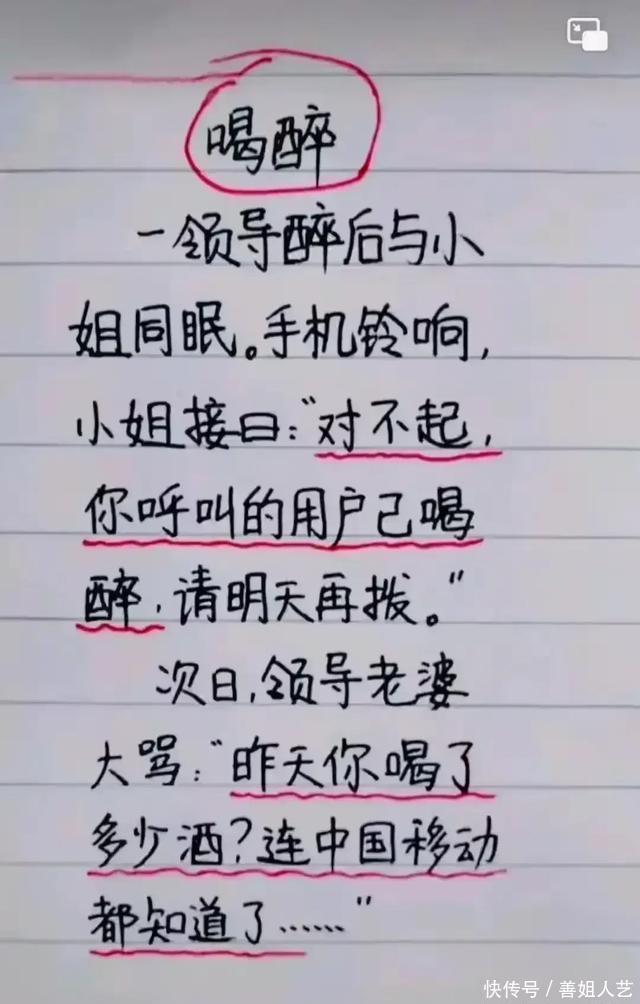 喝醉
一领导醉后与小
姐同眠。手机铃响,
小姐接曰:"对不起,
你呼叫的用户己喝
醉,请明天再拨。"
次日,领导老婆
大骂:"昨天你喝了
多少酒?连中国移动
都知道了……"
快传号/善姐人艺